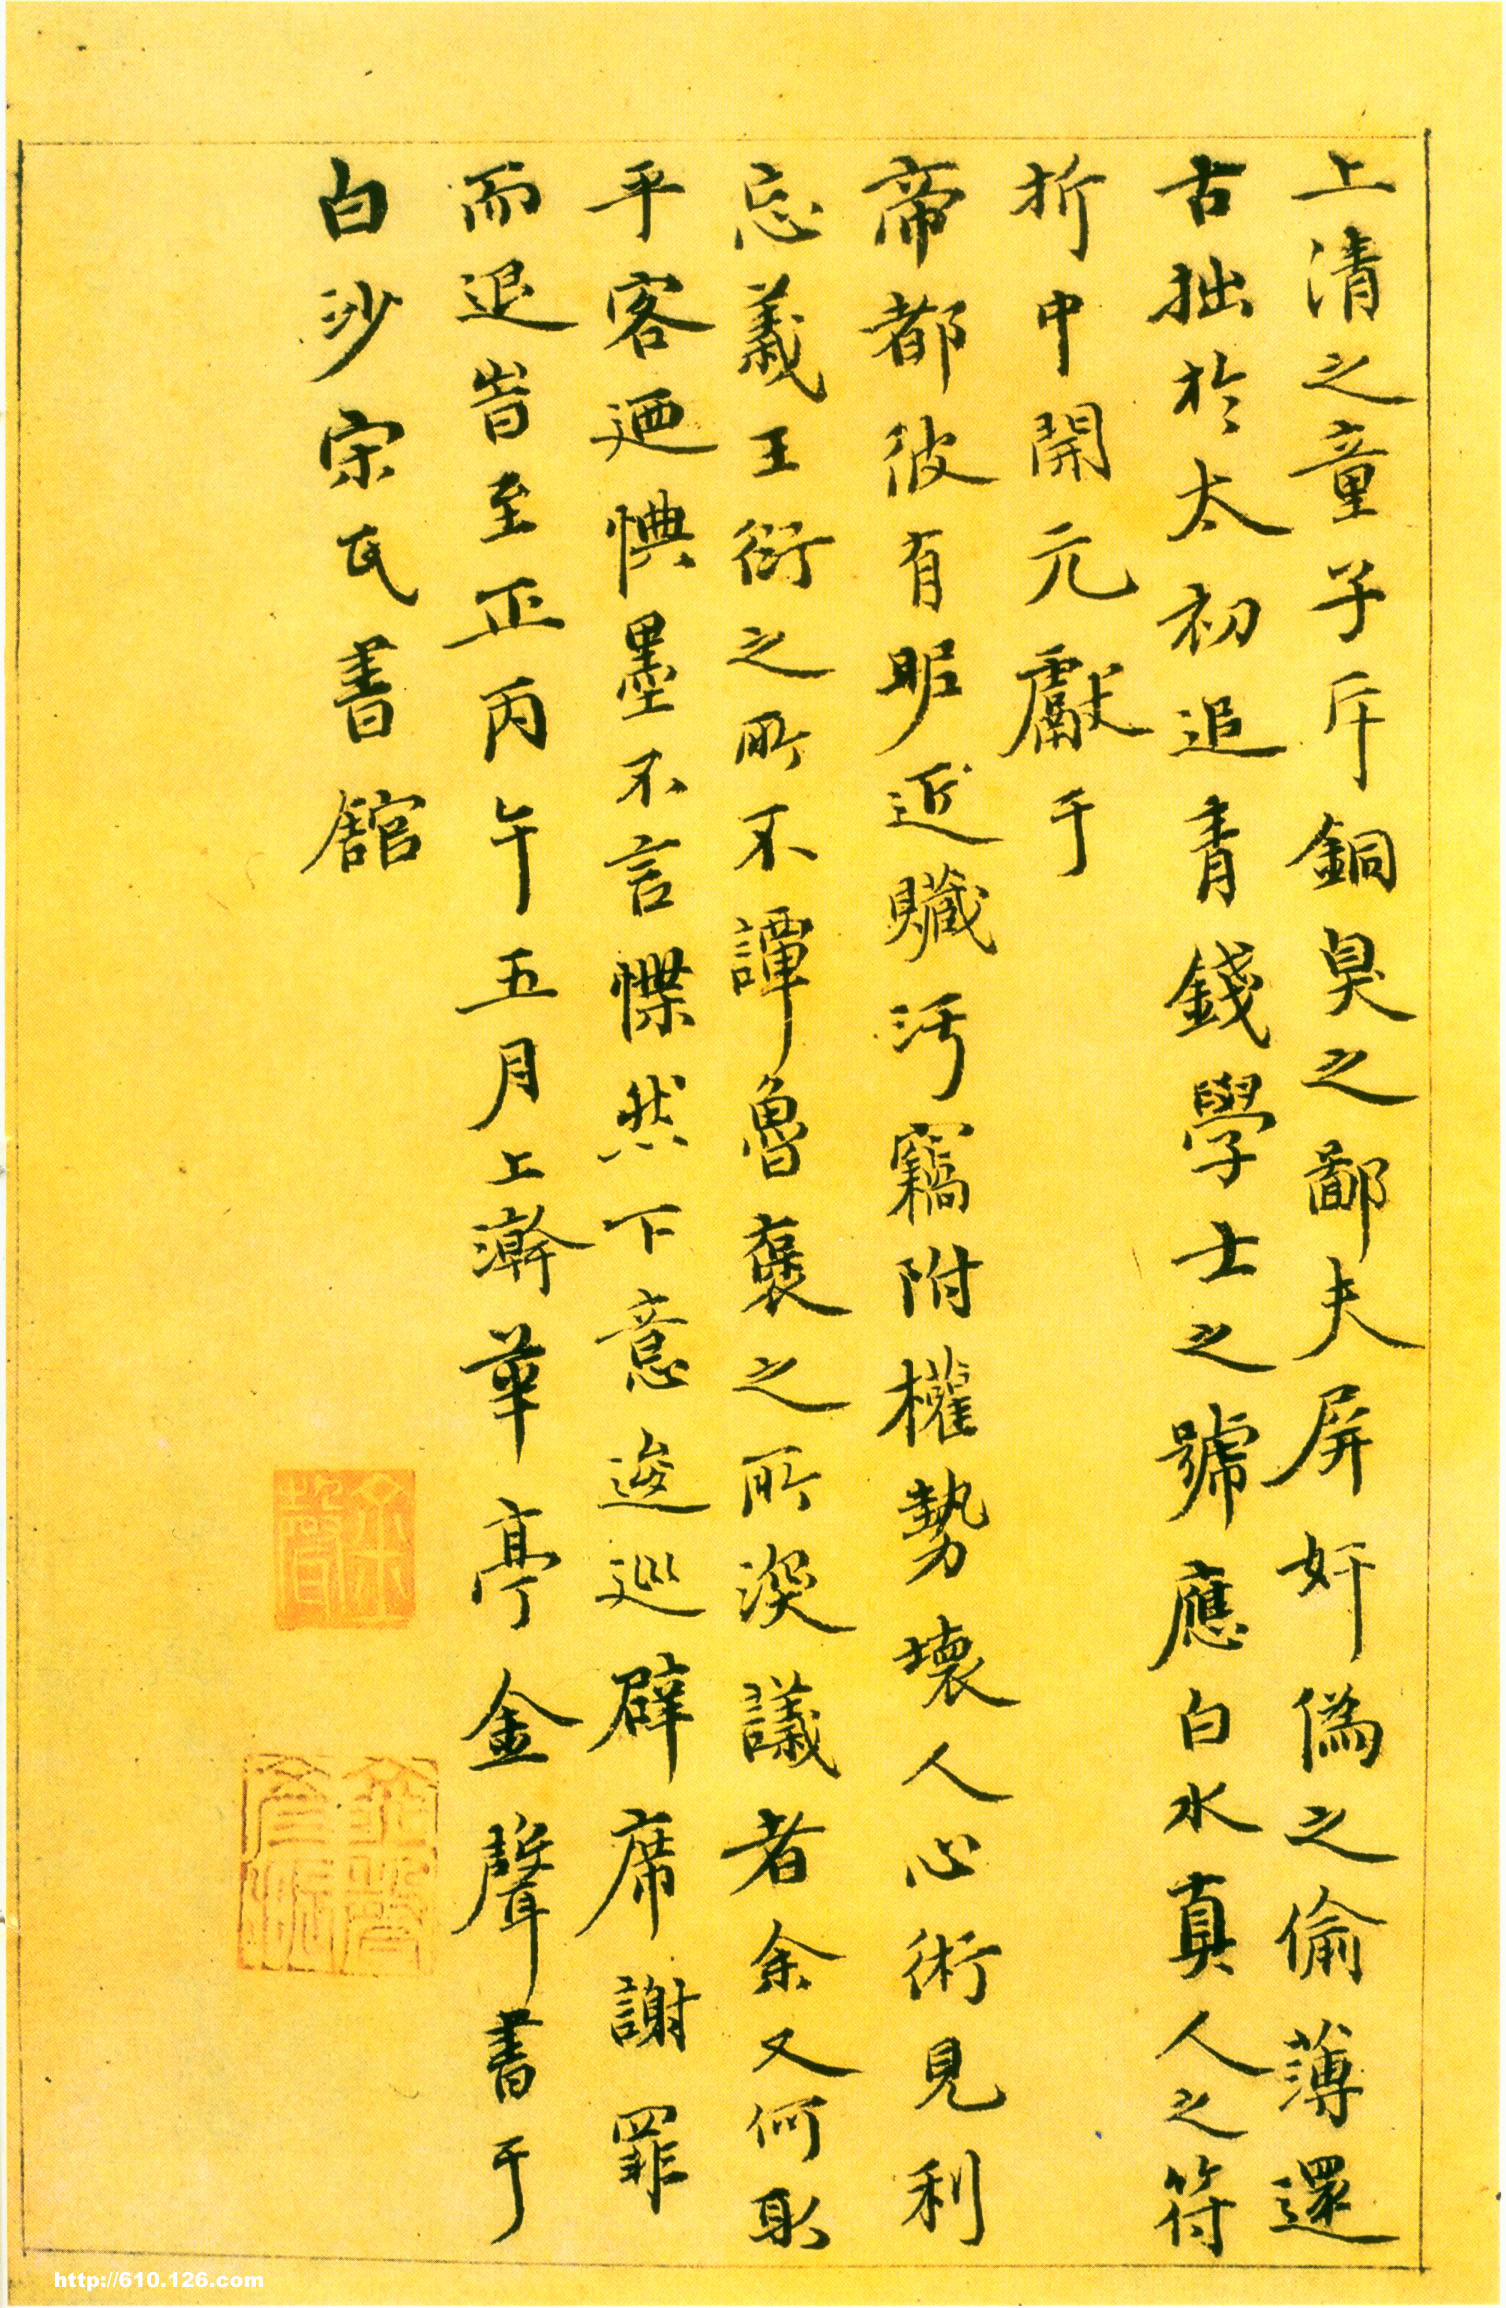 上清之童子斥銅臭之鄙夫屏奸僞之偷薄還
古拙於太初追青錢學士之號應白水真人之符
折中開元獻于
帝都彼有眤近贓汚竊附權勢壞人心術見利
忘義王衍之所不譚魯褒之所深議者余又何取
乎客迺㥏墨不言惵然下意逡巡辟席謝罪
而退旹至正丙午五月上澣華亭金聲書于
白沙宗氏書舘
金聲
http://610.126.com